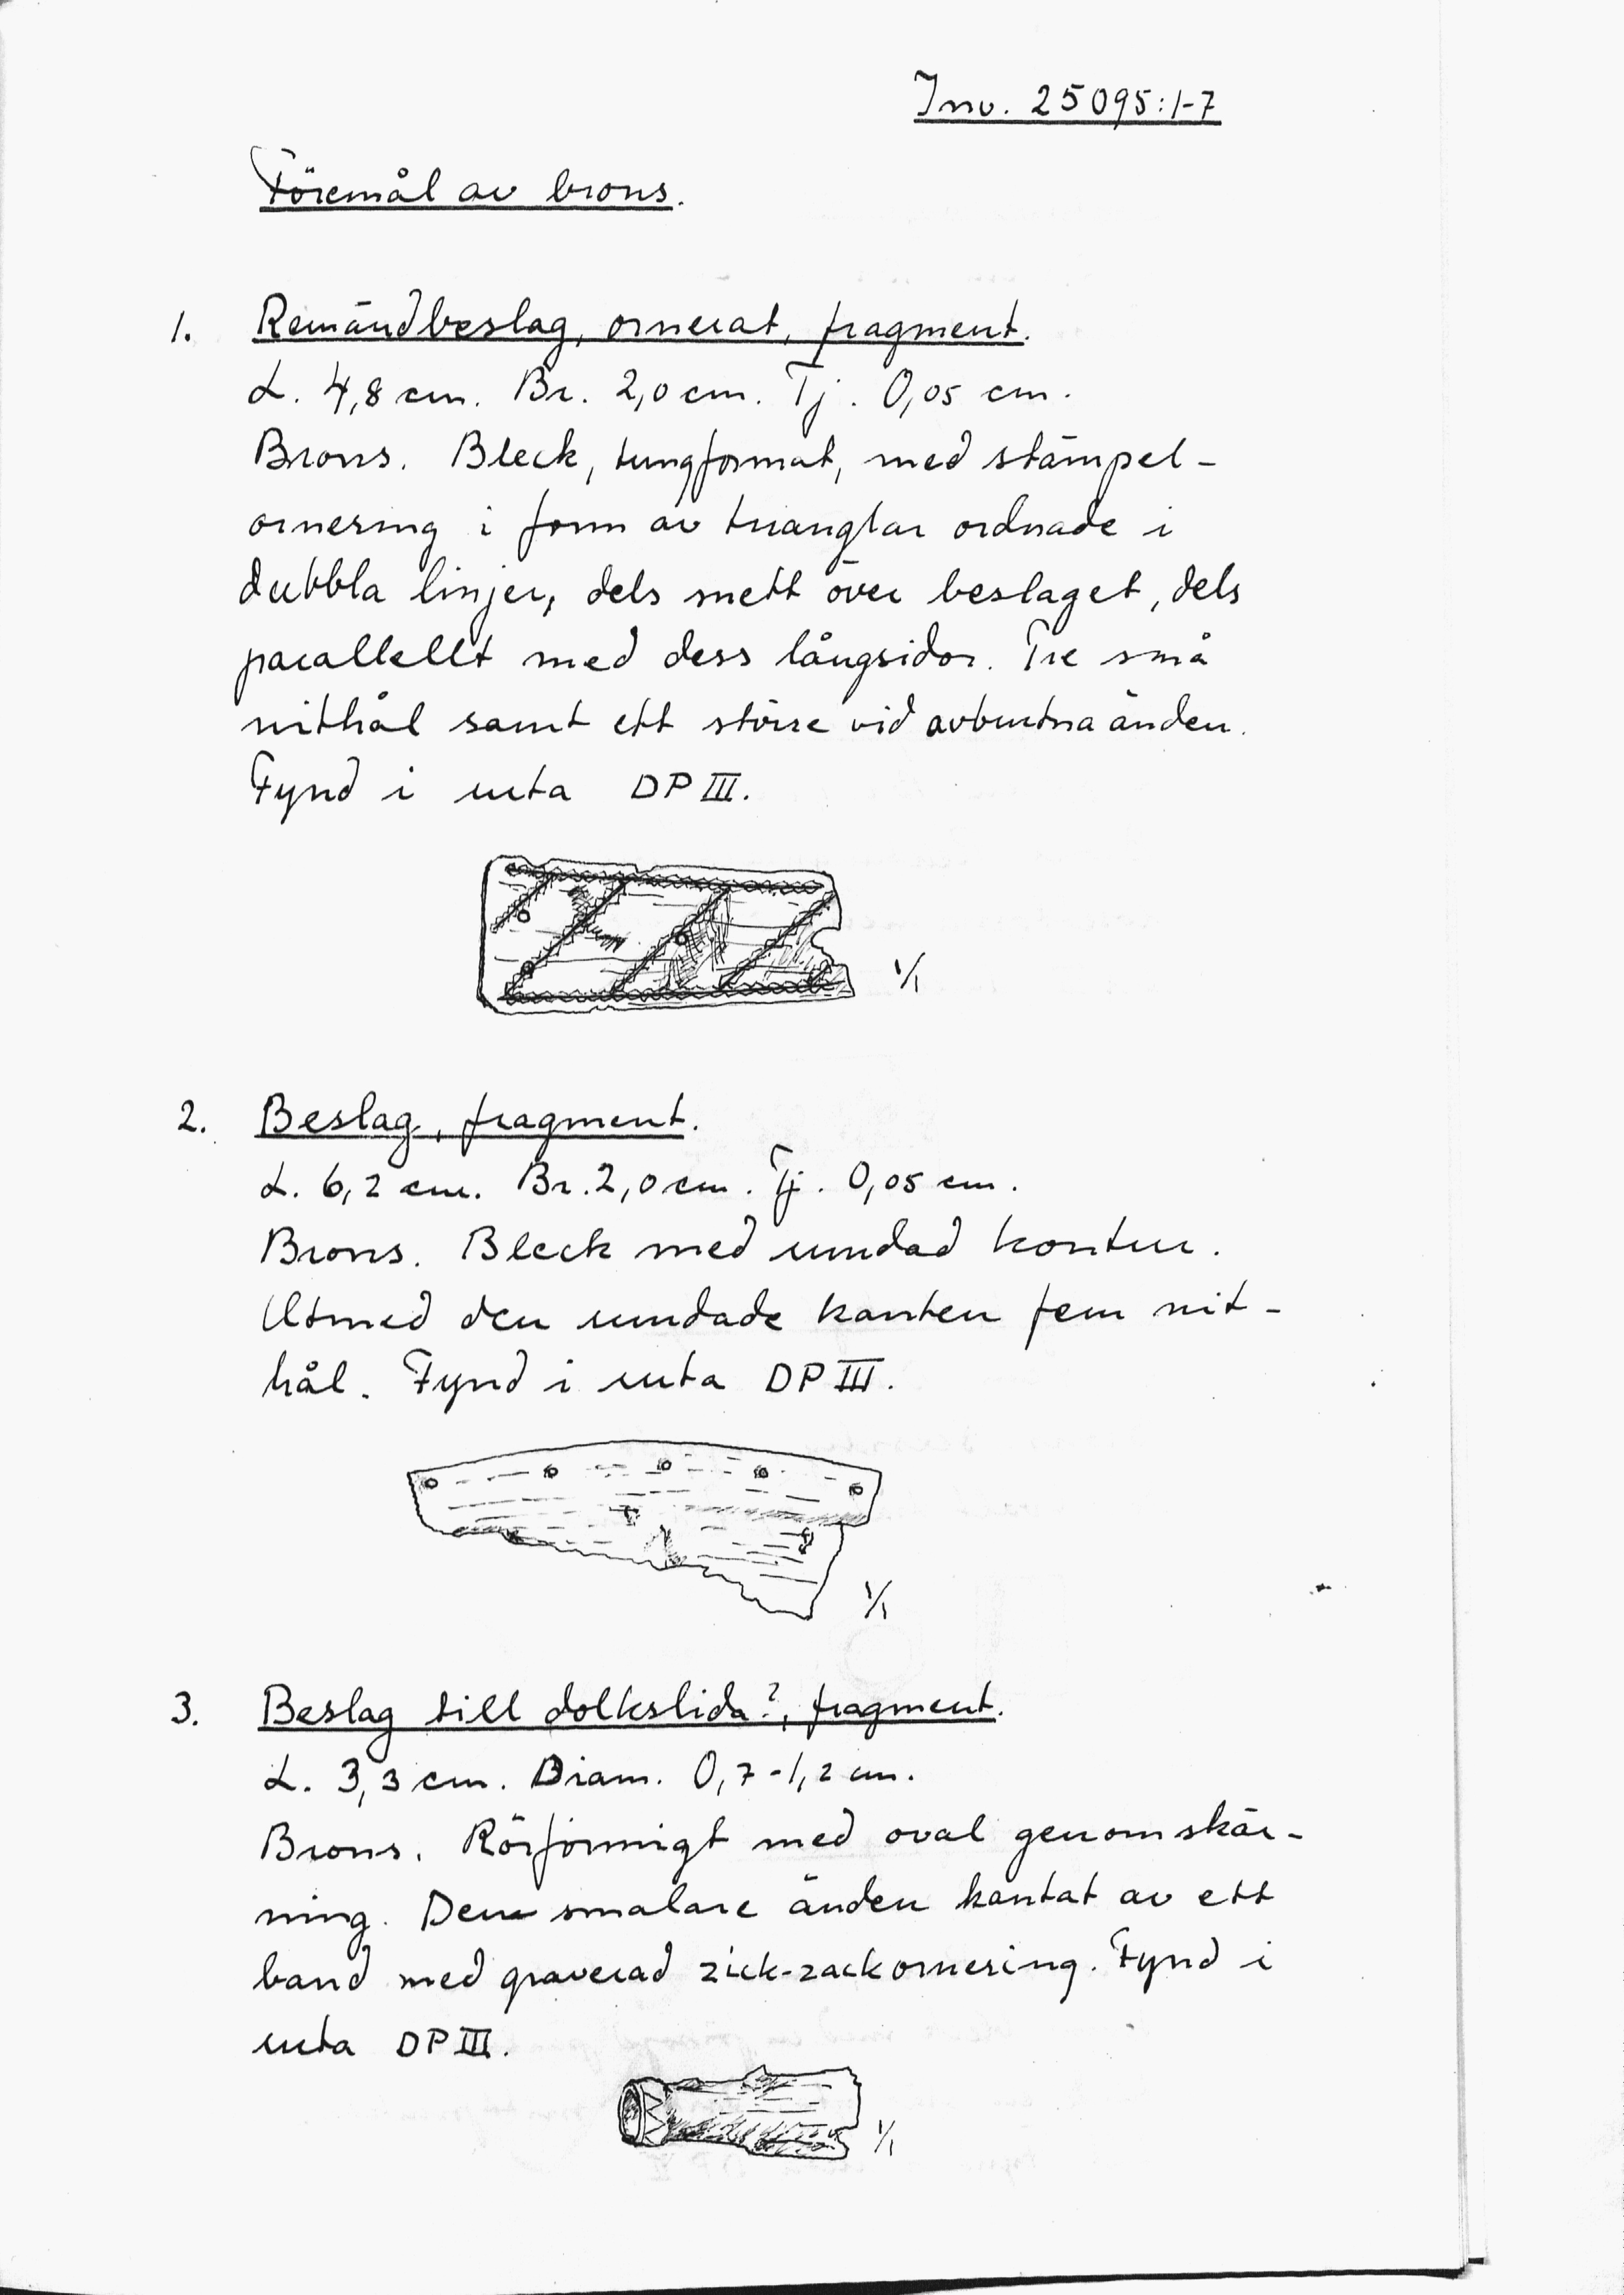 Inv. 25095:1-7
Föremål av brons.
1. Remändbeslag, ornerat, fragment.
L. 4,8 cm. Br. 2,0 cm. Tj. 0,05 cm.
Brons. Bleck, tungformat, med stämpel-
ornering i form av trianglar ordnade i
dubbla linjer, dels snett över beslaget, dels
parallellt med dess långsidor. Tre små
nithål samt ett större vid avbrutna änden.
Fynd i ruta DP III.
1/1
2. Beslag, fragment.
L. 6,2 cm. Br. 2,0 cm. Tj. 0,05 cm.
Brons. Bleck med rundad kontur.
Utmed den rundade kanten fem nit-
hål. Fynd i ruta DP III.
1/1
3. Beslag till dolkslida?, fragment.
L. 3,3 cm. Diam. 0,7-1,2 cm.
Brons. Rörformigt med oval genomskär-
ning. Den smalare änden kantat av ett
band med graverad zick-zackornering. Fynd i
ruta DP III.
1/1